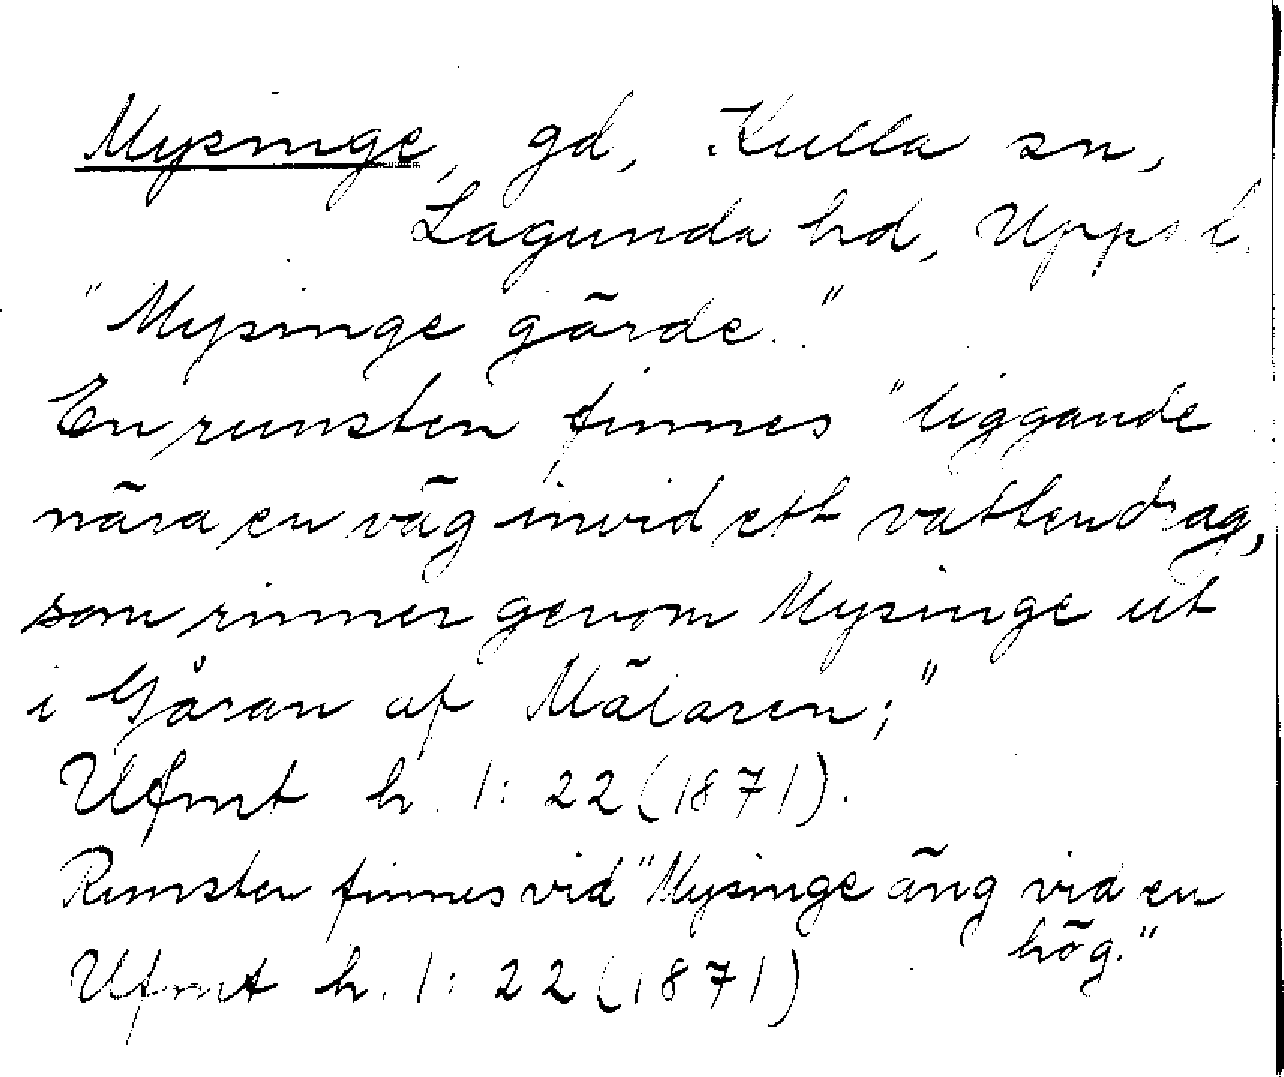 Mysinge, gd, Kulla sn,
Lagunda hd, Upps. l.
"Mysinge gärde."
En runsten finnes "liggande
nära en väg invid ett vattendrag,
som rinner genom Mysinge ut
i Gåran af Mälaren;"
Ufmt h. 1: 22 (1871).
Runsten finnes vid "Mysinge äng vid en
hög."
Ufmt h. 1: 22 (1871)